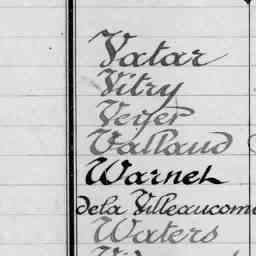 Vatar
Vitry
Veyer
Vallaud
Warnet
de la Villeaucom
Waters